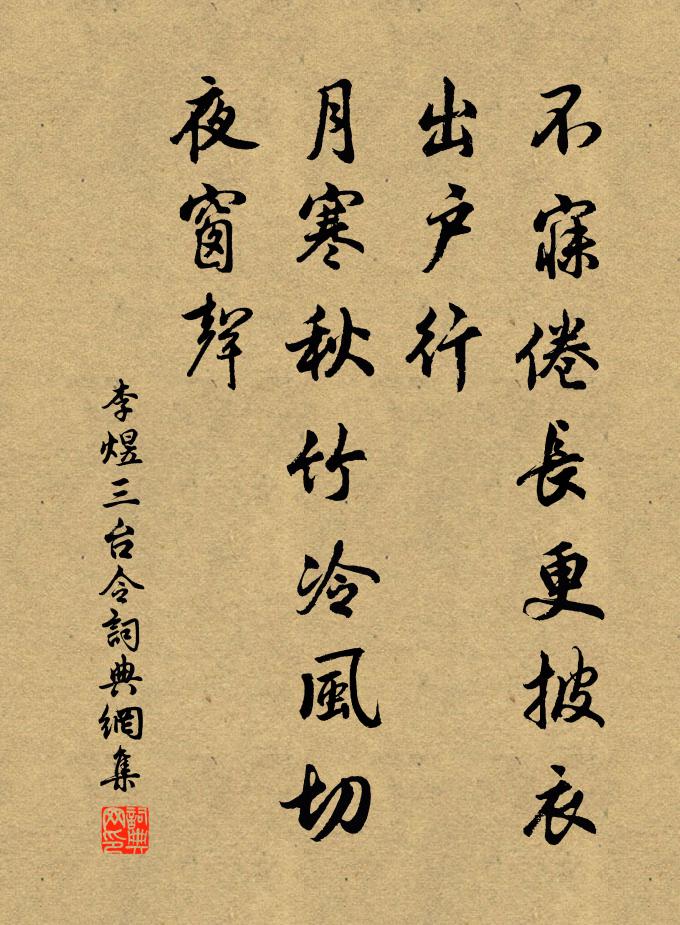 不寐倦長更披衣
出户行
月寒秋竹冷風切
夜窗聲
李煜三台令詞典網集
詞典网印